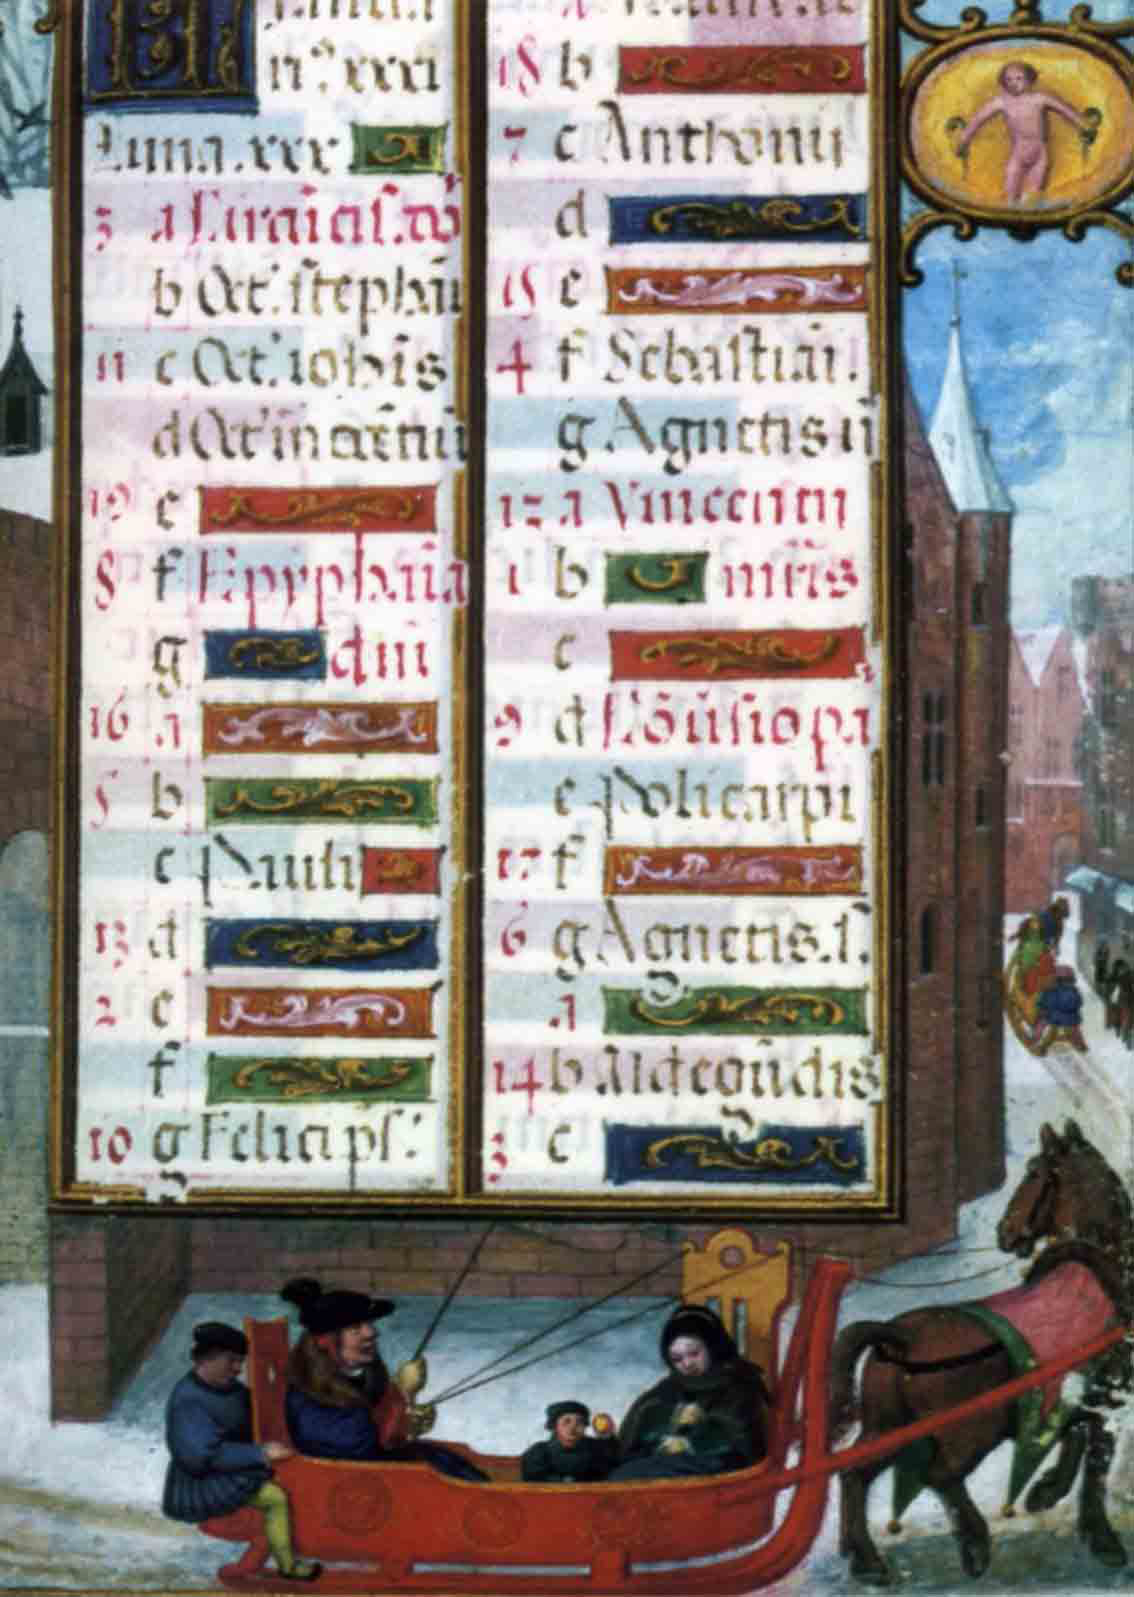 n°. xxxi
Luna. xxx
3 A Circūcis. dn̄i
b Oct. stephāi
11 c Oct. iohīs
d Oct. īnocētiū
19 e
8 f Epyphāia
g dn̄i
16 A
5 b
c Pauli
13 d
2 e
f
10 g Felici ps.
18 b
7 c Anthonii
d
15 e
4 f Sebastiāi.
g Agnetis ū
12 A Vincentii
1 b mr̄is
c
9 d Cōūsio pa
e Policarpi
17 f
6 g Agnetis. s.
A
14 b Aldegūdis
3 c